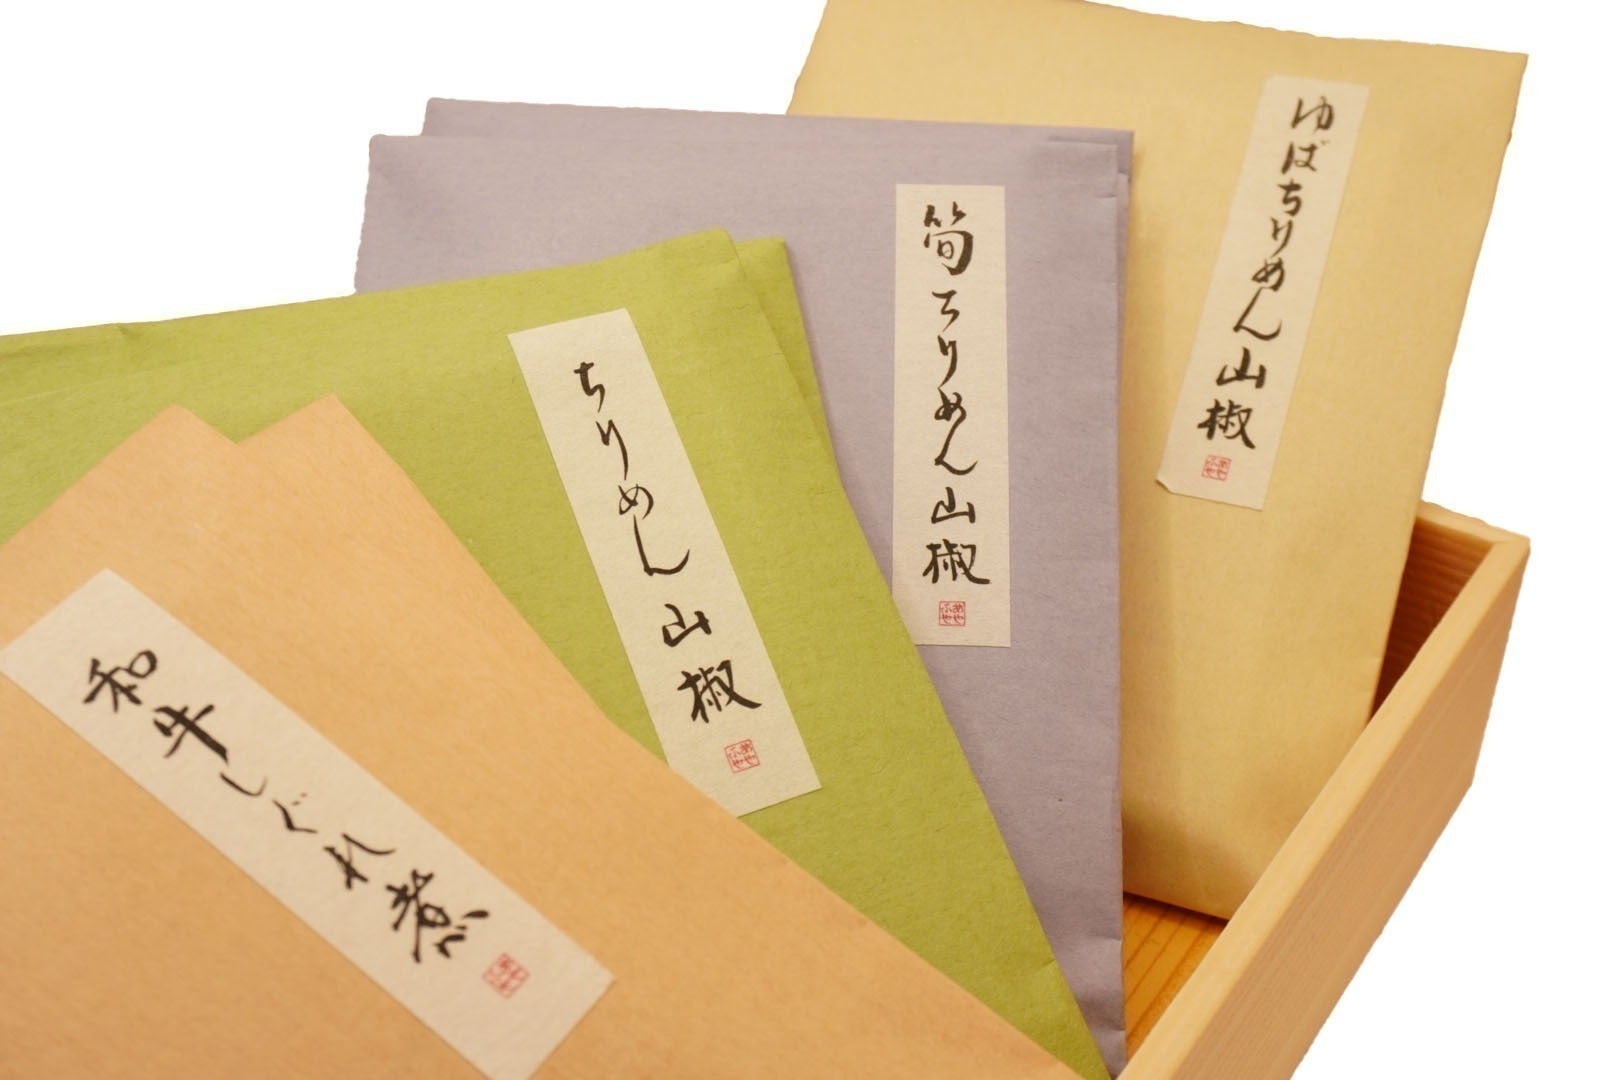 ゆばちりめん山椒
筍ちりめん山椒
ちりめん山椒
和牛しぐれ煮